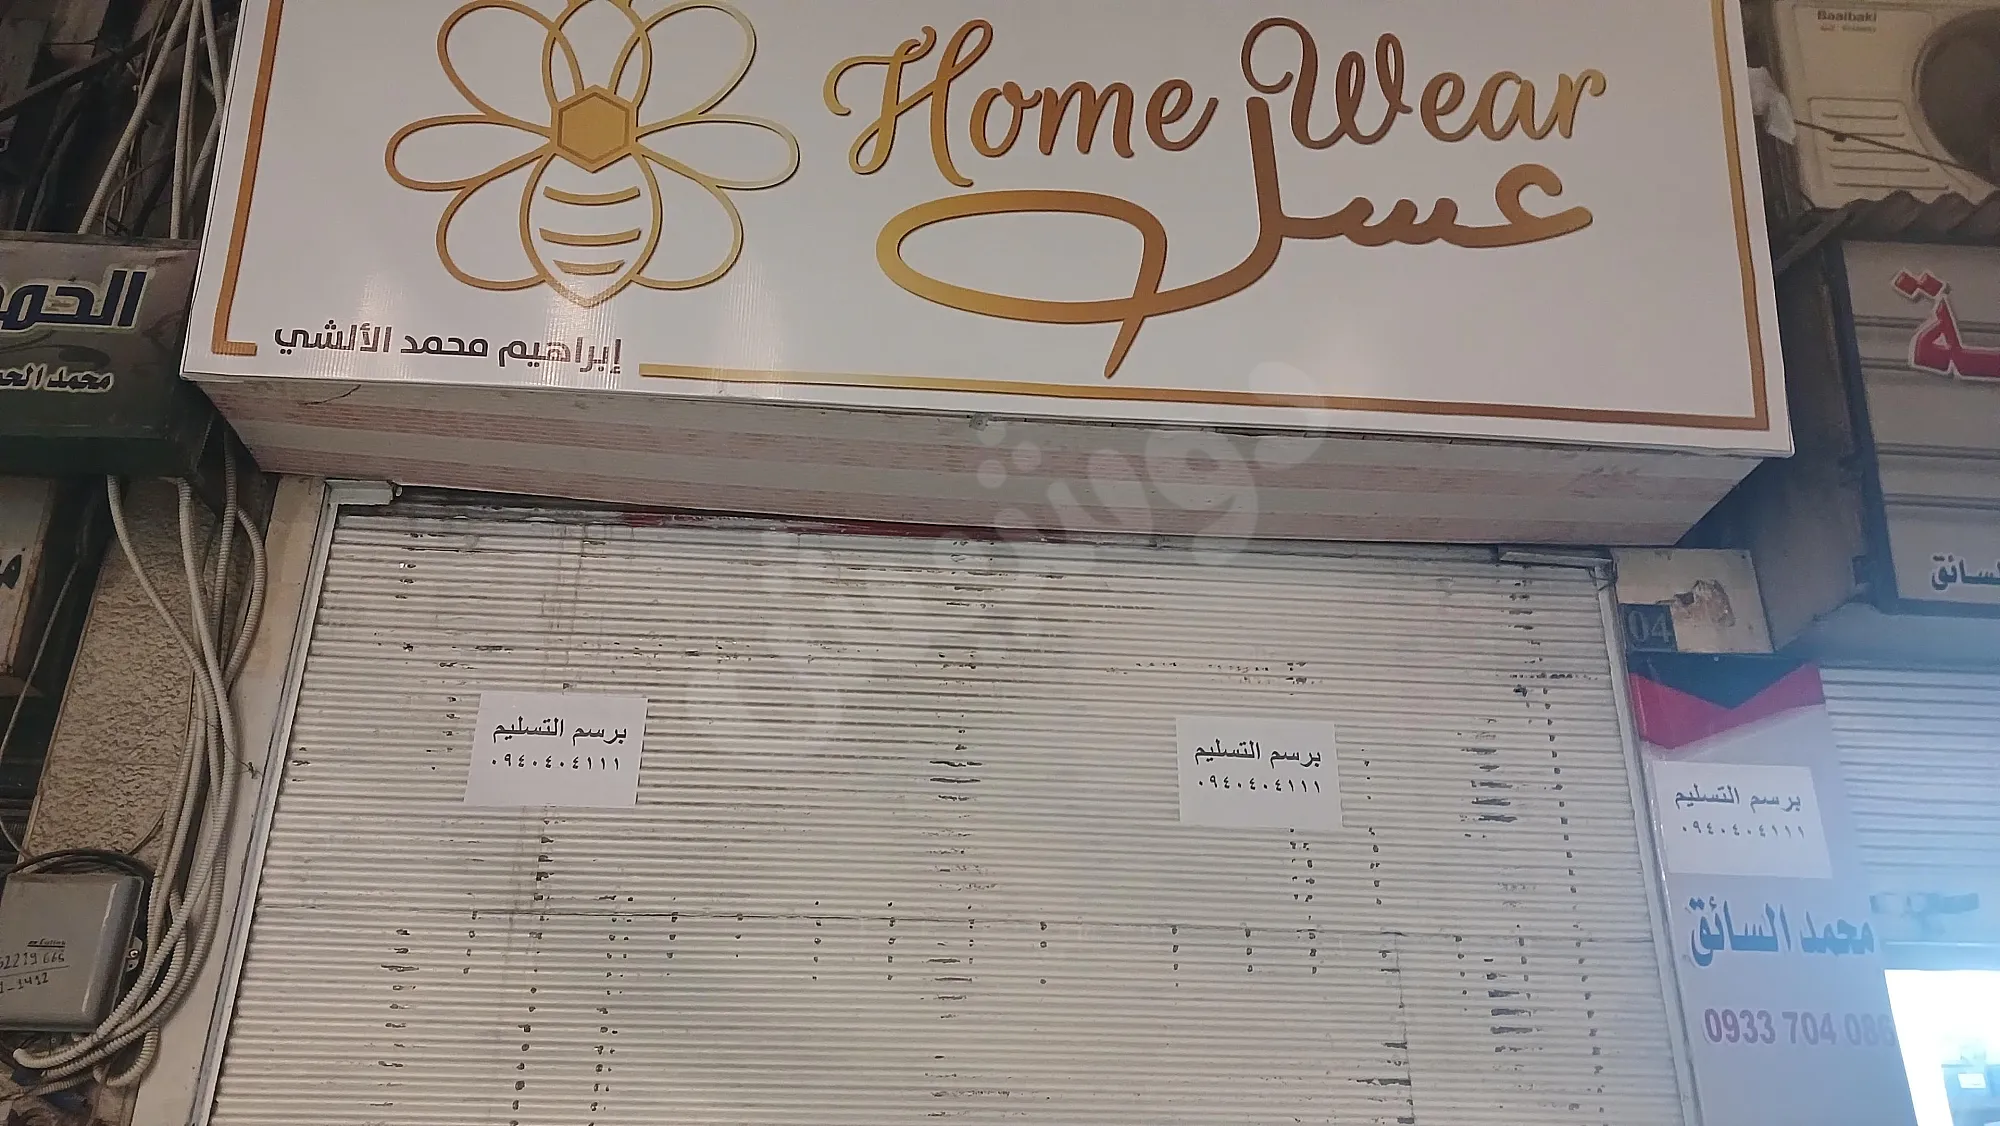 Home Wear
عسل
إبراهيم محمد الألشي
Baalbaki
محمد
السائق
04
برسم التسليم
٠٩٤٠٤٠٤١١١
برسم التسليم
٠٩٤٠٤٠٤١١١
برسم التسليم
٠٩٤٠٤٠٤١١١
محمد السائق
0933 704 086